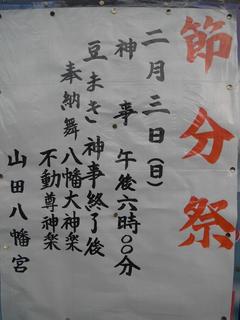 節分祭
二月三日(日)
神事 午後六時〇〇分
豆まき 神事終了後
奉納舞 八幡大神楽
不動尊神楽
山田八幡宮